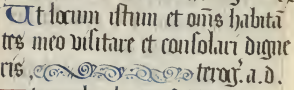 Ut locum istum et om̄s habitā
tes meo visitare et consolari digne
ris, terog̃. a. d.